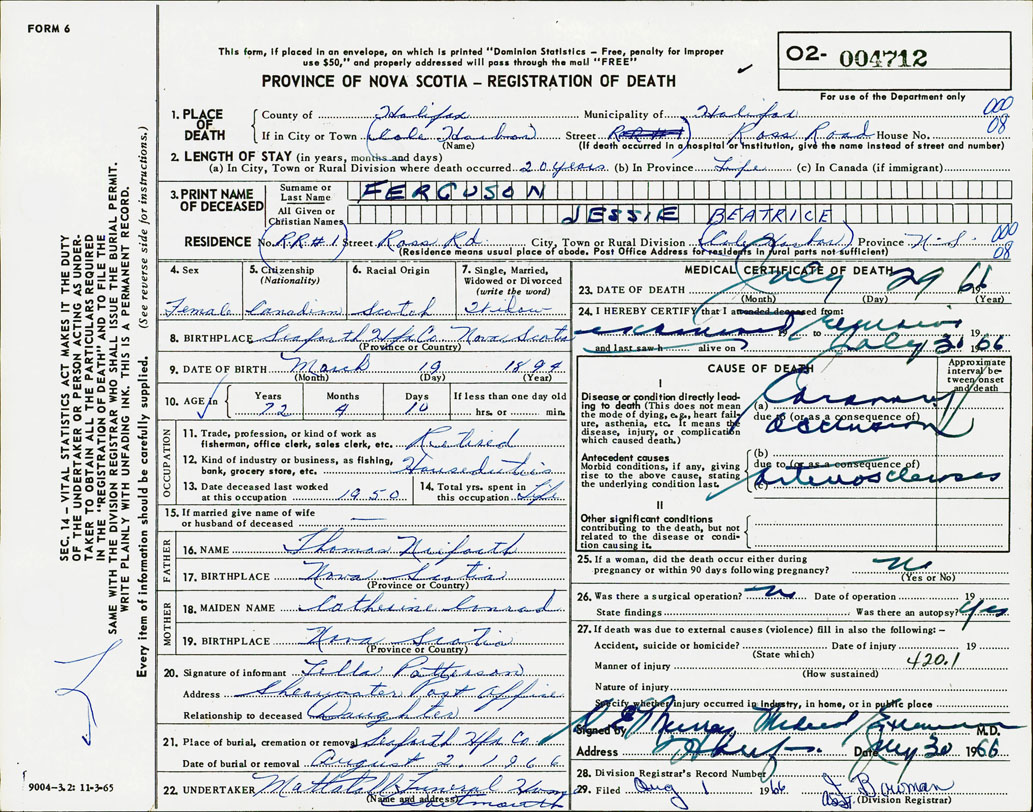 FORM 6
This form, if placed in an envelope, on which is printed "Dominion Statistics – Free, penalty for improper
use $50," and properly addressed will pass through the mail "FREE"
PROVINCE OF NOVA SCOTIA – REGISTRATION OF DEATH
O2- 004712
For use of the Department only
1. PLACE OF DEATH
County of Halifax Municipality of Halifax 000
If in City or Town (Cole Harbour) Street RR#1 Ross Road House No. 08
(Name) (If death occurred in a hospital or institution, give the name instead of street and number)
2. LENGTH OF STAY (in years, months and days)
(a) In City, Town or Rural Division where death occurred 20 years (b) In Province Life (c) In Canada (if immigrant)
3. PRINT NAME OF DECEASED
Surname or Last Name FERGUSON
All Given or Christian Names JESSIE BEATRICE
RESIDENCE No. R.R.#1 Street Ross Rd. City, Town or Rural Division (Cole Harbour) Province N.S. 000
(Residence means usual place of abode. Post Office Address for residents in rural parts not sufficient) 08
4. Sex
Female
5. Citizenship
(Nationality)
Canadian
6. Racial Origin
Scotch
7. Single, Married,
Widowed or Divorced
(write the word)
Widow
8. BIRTHPLACE Seaforth Hfx Co. Nova Scotia
(Province or Country)
9. DATE OF BIRTH March 19 1894
(Month) (Day) (Year)
10. AGE in
Years Months Days If less than one day old
72 4 10 hrs. or min.
OCCUPATION
11. Trade, profession, or kind of work as
fisherman, office clerk, sales clerk, etc. Retired
12. Kind of industry or business, as fishing,
bank, grocery store, etc. Houseduties
13. Date deceased last worked
at this occupation 1950
14. Total yrs. spent in
this occupation Life
15. If married give name of wife
or husband of deceased —
FATHER
16. NAME Thomas Neiforth
17. BIRTHPLACE Nova Scotia
(Province or Country)
MOTHER
18. MAIDEN NAME Catherine Conrad
19. BIRTHPLACE Nova Scotia
(Province or Country)
20. Signature of informant Lilla Patterson
Address Shearwater Post Office
Relationship to deceased Daughter
21. Place of burial, cremation or removal Seaforth Hfx Co.
Date of burial or removal August 2 1966
22. UNDERTAKER Mattatall Funeral Home
(Name and address) Dartmouth
MEDICAL CERTIFICATE OF DEATH
23. DATE OF DEATH July 29 66
(Month) (Day) (Year)
24. I HEREBY CERTIFY that I attended deceased from:
examined 19 to 19
and last saw h alive on July 30 1966
CAUSE OF DEATH
Approximate
interval be-
tween onset
and death
I
Disease or condition directly lead-
ing to death (This does not mean
the mode of dying, e.g., heart fail-
ure, asthenia, etc. It means the
disease, injury, or complication
which caused death.)
(a) Coronary
due to (or as a consequence of)
occlusion
Antecedent causes
Morbid conditions, if any, giving
rise to the above cause, stating
the underlying condition last.
(b)
due to (or as a consequence of)
(c) arteriosclerosis
II
Other significant conditions
contributing to the death, but not
related to the disease or condi-
tion causing it.
25. If a woman, did the death occur either during
pregnancy or within 90 days following pregnancy? No
(Yes or No)
26. Was there a surgical operation? No Date of operation 19
State findings Was there an autopsy? Yes
27. If death was due to external causes (violence) fill in also the following: –
Accident, suicide or homicide? Date of injury 19
(State which)
Manner of injury 420.1
(How sustained)
Nature of injury
Specify whether injury occurred in industry, in home, or in public place
Signed by Murray Medical Examiner M.D.
Address Date July 30 1966
28. Division Registrar's Record Number
29. Filed Aug 1 1966 Bowman
(Division Registrar)
SEC. 14 – VITAL STATISTICS ACT MAKES IT THE DUTY
OF THE UNDERTAKER OR PERSON ACTING AS UNDER-
TAKER TO OBTAIN ALL THE PARTICULARS REQUIRED
IN THE "REGISTRATION OF DEATH" AND TO FILE THE
SAME WITH THE DIVISION REGISTRAR WHO SHALL ISSUE THE BURIAL PERMIT.
WRITE PLAINLY WITH UNFADING INK. THIS IS A PERMANENT RECORD.
Every item of information should be carefully supplied. (See reverse side for instructions.)
9004-3.2: 11-3-65